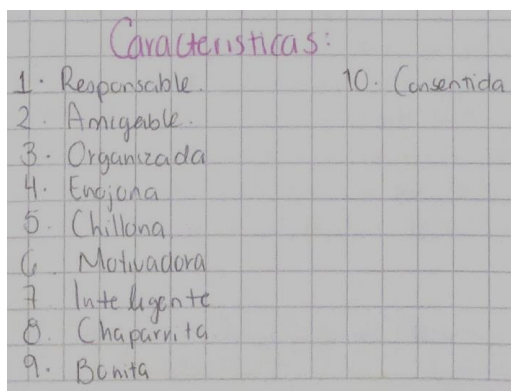 Caracteristicas:
1. Responsable.
2. Amigable.
3. Organizada
4. Enojona
5. Chillona
6 Motivadora
7 Inteligente
8. Chaparrita
9. Bonita
10. Consentida